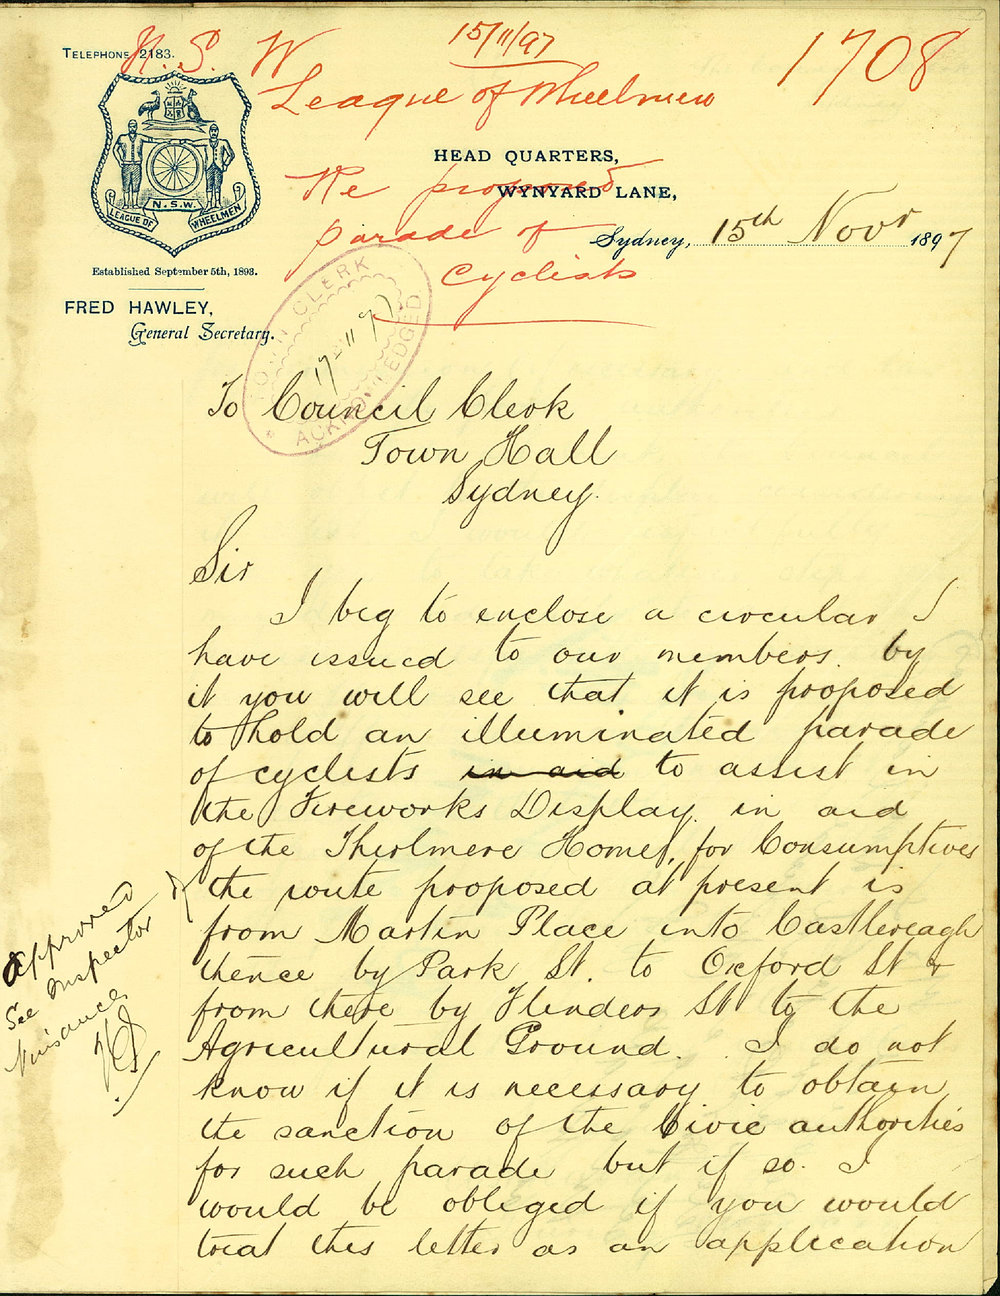 TELEPHONE 2183.
15/11/97
1708
N. S. W
League of Wheelmen
N.S.W.
LEAGUE OF WHEELMEN
Established September 5th, 1893.
FRED HAWLEY,
General Secretary.
HEAD QUARTERS,
WYNYARD LANE,
Re proposed
parade of
Cyclists
Sydney, 15th Novr 1897
TOWN CLERK
17-11-97
ACKNOWLEDGED
To Council Clerk
Town Hall
Sydney.
Sir
I beg to enclose a circular I
have issued to our members. by
it you will see that it is proposed
to hold an illuminated parade
of cyclists in aid to assist in
the Fireworks Display in aid
of the Thirlmere Home, for Consumptives
the route proposed at present is
from Martin Place into Castlereagh
thence by Park St. to Oxford St &
from there by Flinders St to the
Agricultural Ground. I do not
know if it is necessary to obtain
the sanction of the Civic authorities
for such parade but if so. I
would be obliged if you would
treat this letter as an application
approved
See Inspector of
Nuisances